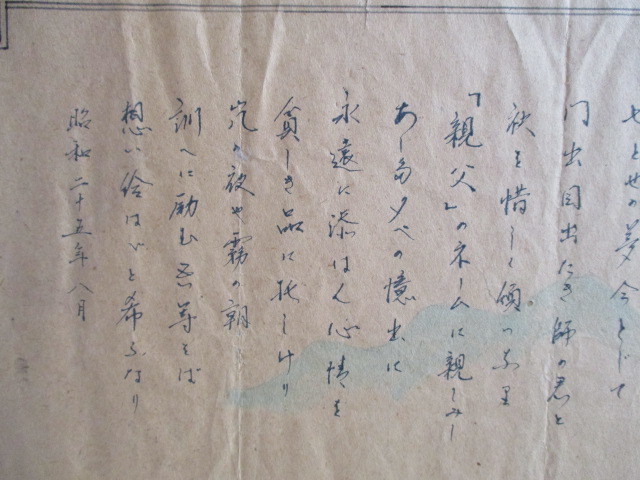 七とせの夢今とじて
門出目出たき師の君と
袂を惜しく頒つなり
「親父」のネームに親しみし
あした夕べの憶出に
永遠に添はん心情を
貧しき品に托しけり
嵐の夜や霧の朝
訓へに励む吾等をば
想い給はゞと希ふなり
昭和二十五年八月